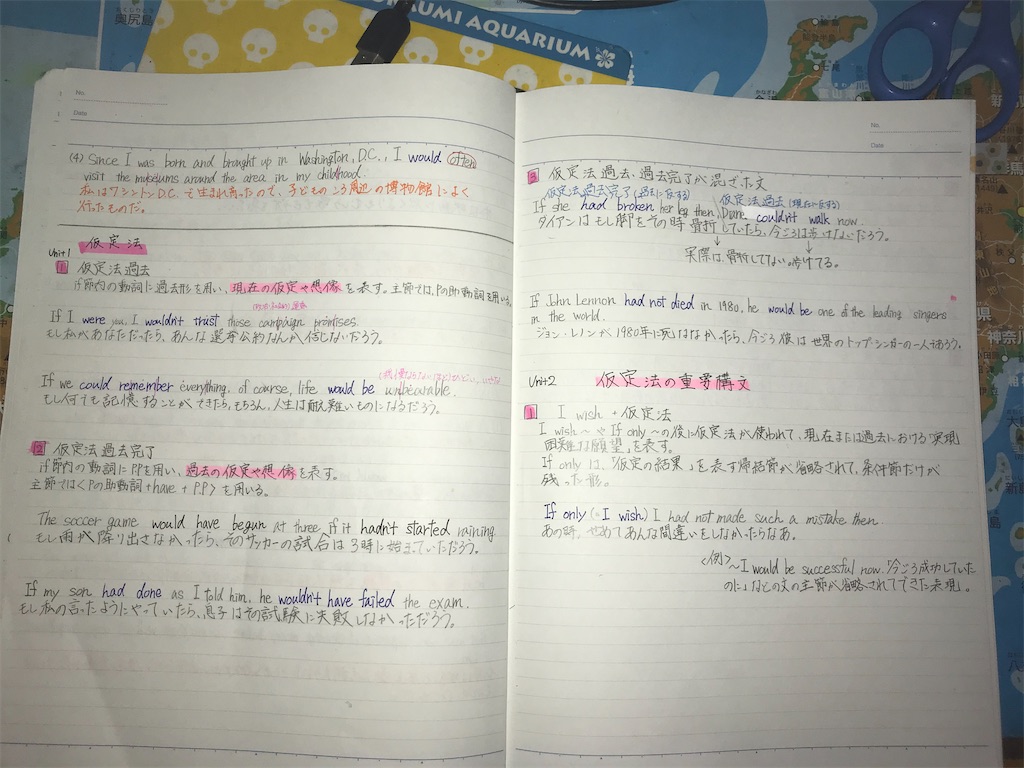 おくしりとう
奥尻島
UMI AQUARIUM
No.
Date
(4) Since I was born and brought up in Washington, D.C., I would often
visit the museums around the area in my childhood.
私はワシントンD.C.で生まれ育ったので、子どものころ周辺の博物館によく
行ったものだ。
Unit1 仮定法
1 仮定法過去
if節内の動詞に過去形を用い、現在の仮定や想像を表す。主節では、Pの助動詞を用いる。
If I were you, I wouldn't trust those campaign promises.
もし私があなただったら、あんな選挙公約なんか信じないだろう。
If we could remember everything, of course, life would be unbearable.
もし何でも記憶することができたら、もちろん、人生は耐え難いものになるだろう。
2 仮定法過去完了
if節内の動詞にPPを用い、過去の仮定や想像を表す。
主節では<Pの助動詞+have+P.P>を用いる。
The soccer game would have begun at three, if it hadn't started raining.
もし雨が降り出さなかったら、そのサッカーの試合は3時に始まっていただろう。
If my son had done as I told him, he wouldn't have failed the exam.
もし私の言ったようにやっていたら、息子はその試験に失敗しなかっただろう。
No.
Date
3 仮定法過去、過去完了が混ざった文
仮定法過去完了(過去に反する) 仮定法過去(現在に反する)
If she had broken her leg then, Diane couldn't walk now.
ダイアンはもし脚をその時骨折していたら、今ごろは歩けないだろう。
実際は、骨折してない。歩けてる。
If John Lennon had not died in 1980, he would be one of the leading singers
in the world.
ジョン・レノンが1980年に死ななかったら、今ごろ彼は世界のトップ・シンガーの一人であろう。
Unit2 仮定法の重要構文
1 I wish + 仮定法
I wish ~ や If only ~ の後に仮定法が使われて、現在または過去における「実現
困難な願望」を表す。
If only は、「仮定の結果」を表す帰結節が省略されて、条件節だけが
残った形。
If only (= I wish) I had not made such a mistake then.
あの時、せめてあんな間違いをしなかったらなあ。
<例>~ I would be successful now.「今ごろ成功していた
のに」などの文の主節が省略されてできた表現。
神奈川